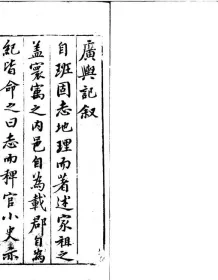 廣輿記叙
自班固志地理而著述家祖之
盖寰㝢之内邑自為載郡自為
紀皆命之曰志而稗官小史亦